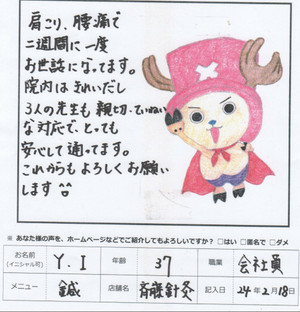 肩こり、腰痛で
二週間に一度
お世話になってます。
院内はきれいだし
3人の先生も親切、ていねい
な対応で、とっても
安心して通ってます。
これからもよろしくお願い
します
※ あなた様の声を、ホームページなどでご紹介してもよろしいですか？ □はい □匿名で □ダメ
お名前 (イニシャル可) Y.I 年齢 37 職業 会社員
メニュー 鍼 店舗名 斉藤針灸 記入日 24年2月18日